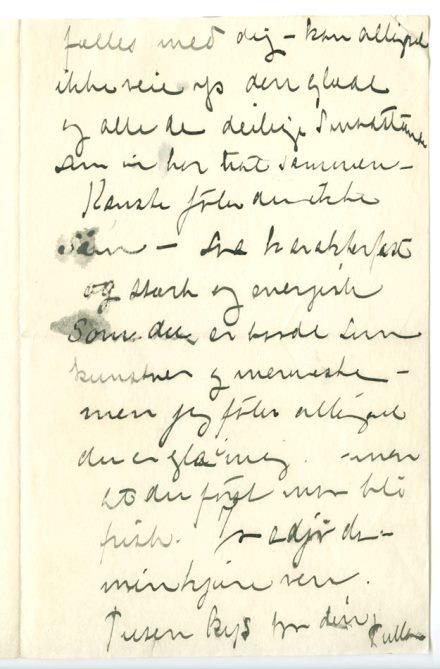 fælles med dig – kan alligvel
ikke veie op den glæde
og alle de deilige
som vi har hat sammen –
Kanske føler du ikke
Sån – Sva karakterfast
og stærk og energisk
Som du er baade som
kunstner og menneske –
men jeg føler alligvel
du er gla' i mig . – men
at du først må bli
frisk. adjø da –
min kjære ven.
Tusen kys fra din
Tulla